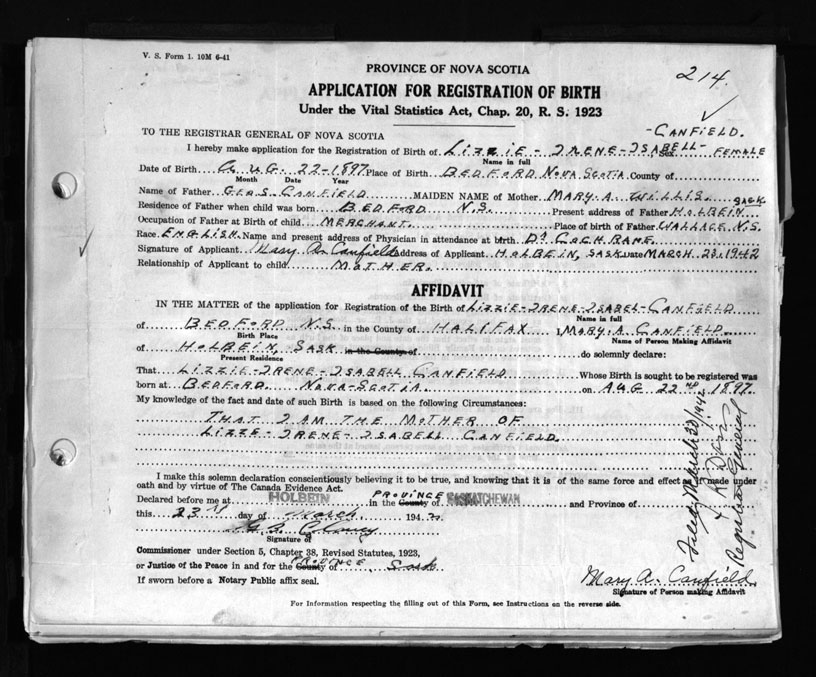 V. S. Form 1. 10M 6-41
214
PROVINCE OF NOVA SCOTIA
APPLICATION FOR REGISTRATION OF BIRTH
Under the Vital Statistics Act, Chap. 20, R. S. 1923
TO THE REGISTRAR GENERAL OF NOVA SCOTIA
-CANFIELD.
I hereby make application for the Registration of Birth of LIZZIE-IRENE-ISABELL- Sex FEMALE
Name in full
Date of Birth AUG. 22-1897 Place of Birth BEDFORD NOVA SCOTIA County of
Month Date Year
Name of Father GEO S. CANFIELD MAIDEN NAME of Mother MARY. A. WILLIS.
SASK.
Residence of Father when child was born BEDFORD N.S. Present address of Father HOLBEIN
Occupation of Father at Birth of child MERCHANT. Place of birth of Father WALLACE N.S.
Race ENGLISH. Name and present address of Physician in attendance at birth DR COCHRANE
Signature of Applicant Mary A. Canfield Address of Applicant HOLBEIN, SASK. Date MARCH 23. 1942
Relationship of Applicant to child MOTHER.
AFFIDAVIT
IN THE MATTER of the application for Registration of the Birth of LIZZIE-IRENE-ISABEL-CANFIELD
Name in full
of BEDFORD N.S. in the County of HALIFAX I, MARY. A CANFIELD
Birth Place Name of Person Making Affidavit
of HOLBEIN, SASK in the County of do solemnly declare:
Present Residence
That LIZZIE-IRENE-ISABELL CANFIELD Whose Birth is sought to be registered was
born at BEDFORD. NOVA-SCOTIA on AUG 22ND 1897.
My knowledge of the fact and date of such Birth is based on the following Circumstances:
THAT I AM THE MOTHER OF
LIZZE-IRENE-ISABELL CANFIELD.
I make this solemn declaration conscientiously believing it to be true, and knowing that it is of the same force and effect as if made under
oath and by virtue of The Canada Evidence Act.
Declared before me at HOLBEIN in the County PROVINCE of SASKATCHEWAN and Province of
this 23rd day of March 1942
Signature of
Commissioner under Section 5, Chapter 38, Revised Statutes, 1923,
or Justice of the Peace in and for the County PROVINCE of Sask
If sworn before a Notary Public affix seal.
Mary A. Canfield
Signature of Person making Affidavit
For Information respecting the filling out of this Form, see Instructions on the reverse side.
Filed March 30/1942
Registrar General